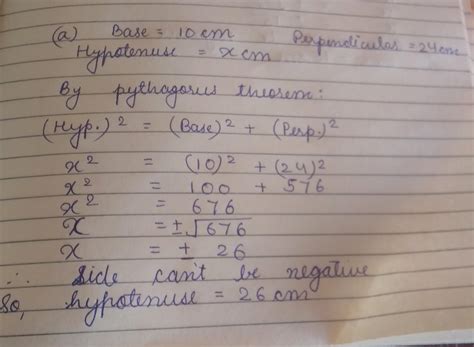 (a) Base = 10 cm Perpendicular = 24 cm
Hypotenuse = x cm
By pythagorus theorem:
(Hyp.)² = (Base)² + (Perp.)²
x² = (10)² + (24)²
x² = 100 + 576
x² = 676
x = ±√676
x = ± 26
∴ Side can't be negative
So, hypotenuse = 26 cm